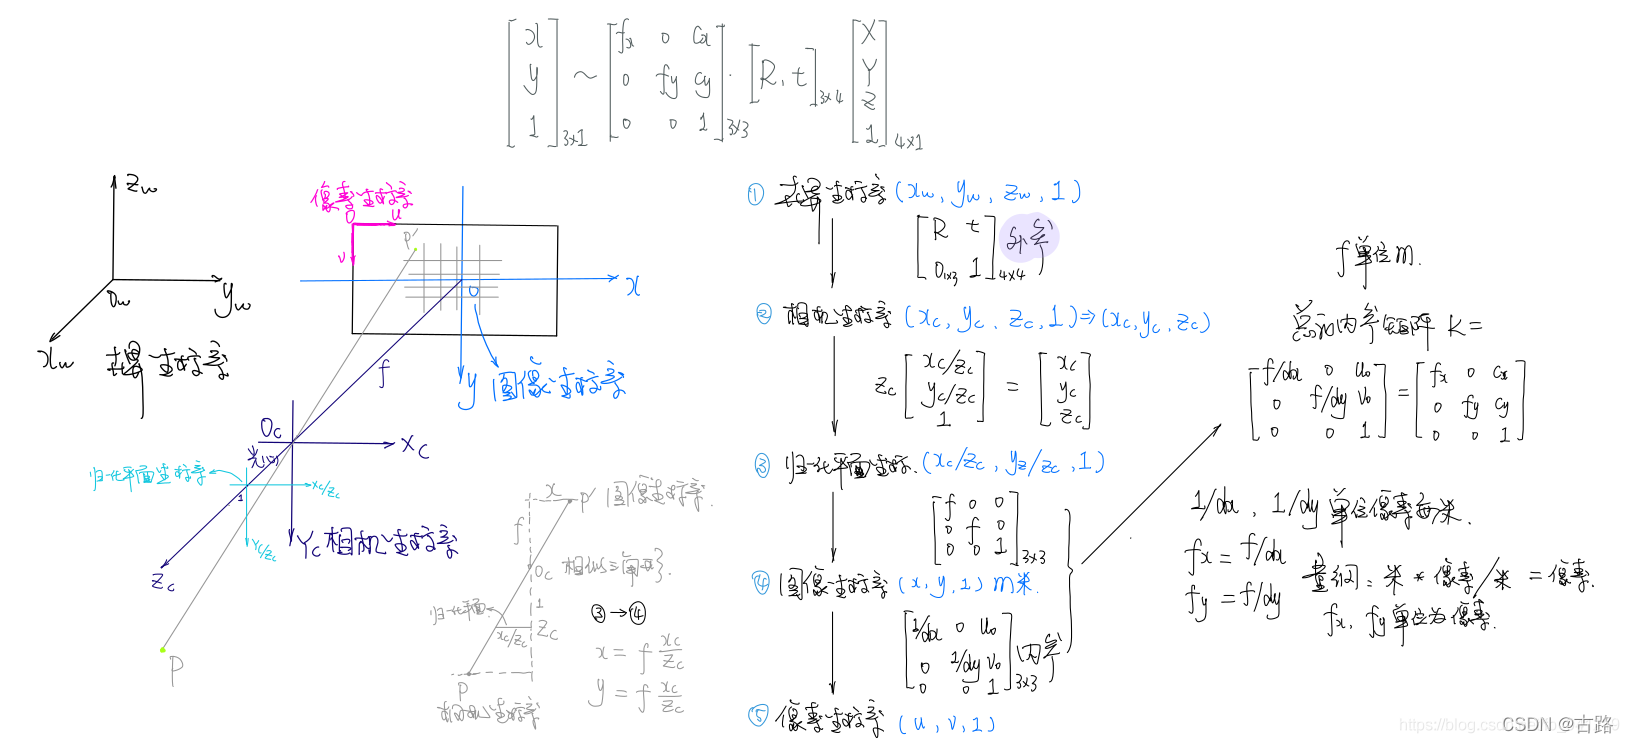 [x y 1]3x1 ~ [fx 0 cx; 0 fy cy; 0 0 1]3x3 · [R, t]3x4 [X Y Z 1]4x1
Zw
Ow
Yw
Xw
世界坐标系
像素坐标系
O
u
v
P'
o
x
y
图像坐标系
f
Oc
光心
Xc
Yc 相机坐标系
Zc
归一化平面坐标系
1
Xc/Zc
Yc/Zc
P
x
P' 图像坐标系.
f
Oc 相似三角形.
归一化平面.
1
Xc/Zc
Zc
P
相机坐标系
③→④
x = f Xc/Zc
y = f Xc/Zc
① 世界坐标系 (xw, yw, zw, 1)
[R t; 0 1x3 1]4x4 外参
② 相机坐标系 (xc, yc, zc, 1)⇒(xc, yc, zc)
zc [xc/zc yc/zc 1] = [xc yc zc]
③ 归一化平面坐标. (xc/zc, yz/zc, 1)
[f 0 0; 0 f 0; 0 0 1]3x3
④ 图像坐标系 (x, y, 1) m米.
[1/dx 0 u0; 0 1/dy v0; 0 0 1]3x3 内参
⑤ 像素坐标系 (u, v, 1)
f 单位m.
总的内参矩阵 K=
[f/dx 0 u0; 0 f/dy v0; 0 0 1] = [fx 0 cx; 0 fy cy; 0 0 1]
1/dx, 1/dy 单位像素每米.
fx = f/dx
fy = f/dy
量纲: 米 * 像素/米 = 像素.
fx, fy 单位为像素.
CSDN @古路